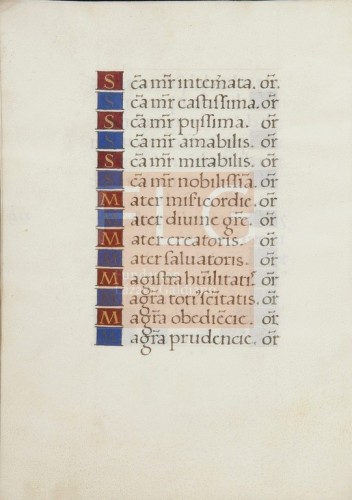 Sc̄a mr̄ intem̄ata. or̄.
Sc̄a mr̄ castissima. or̄
Sc̄a mr̄ pijssima. or̄
Sc̄a mr̄ amabilis. or̄
Sc̄a mr̄ mirabilis. or̄
Sc̄a mr̄ nobilissīa. or̄
Mater misericordie. or̄
Mater diuine gr̄e. or̄
Mater creatoris. or̄
Mater saluatoris. or̄
Magistra hūilitatis. or̄
Magr̄a toti⁹ sc̄itatis. or̄
Magr̄a obediēcie. or̄
Magr̄a prudencie. or̄
FLG